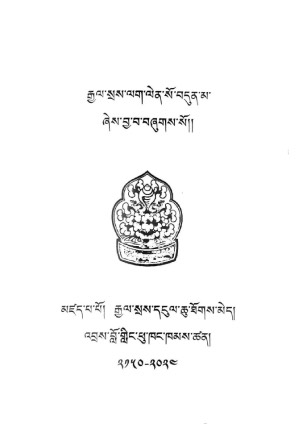 རྒྱལ་སྲས་ལག་ལེན་སོ་བདུན་མ་
ཞེས་བྱ་བ་བཞུགས་སོ།།
མཛད་པ་པོ། རྒྱལ་སྲས་དངུལ་ཆུ་ཐོགས་མེད།
འབྲས་བློ་གླིང་ཕུ་ཁང་ཁམས་ཚན།
༢༡༥༠-༢༠༢༤